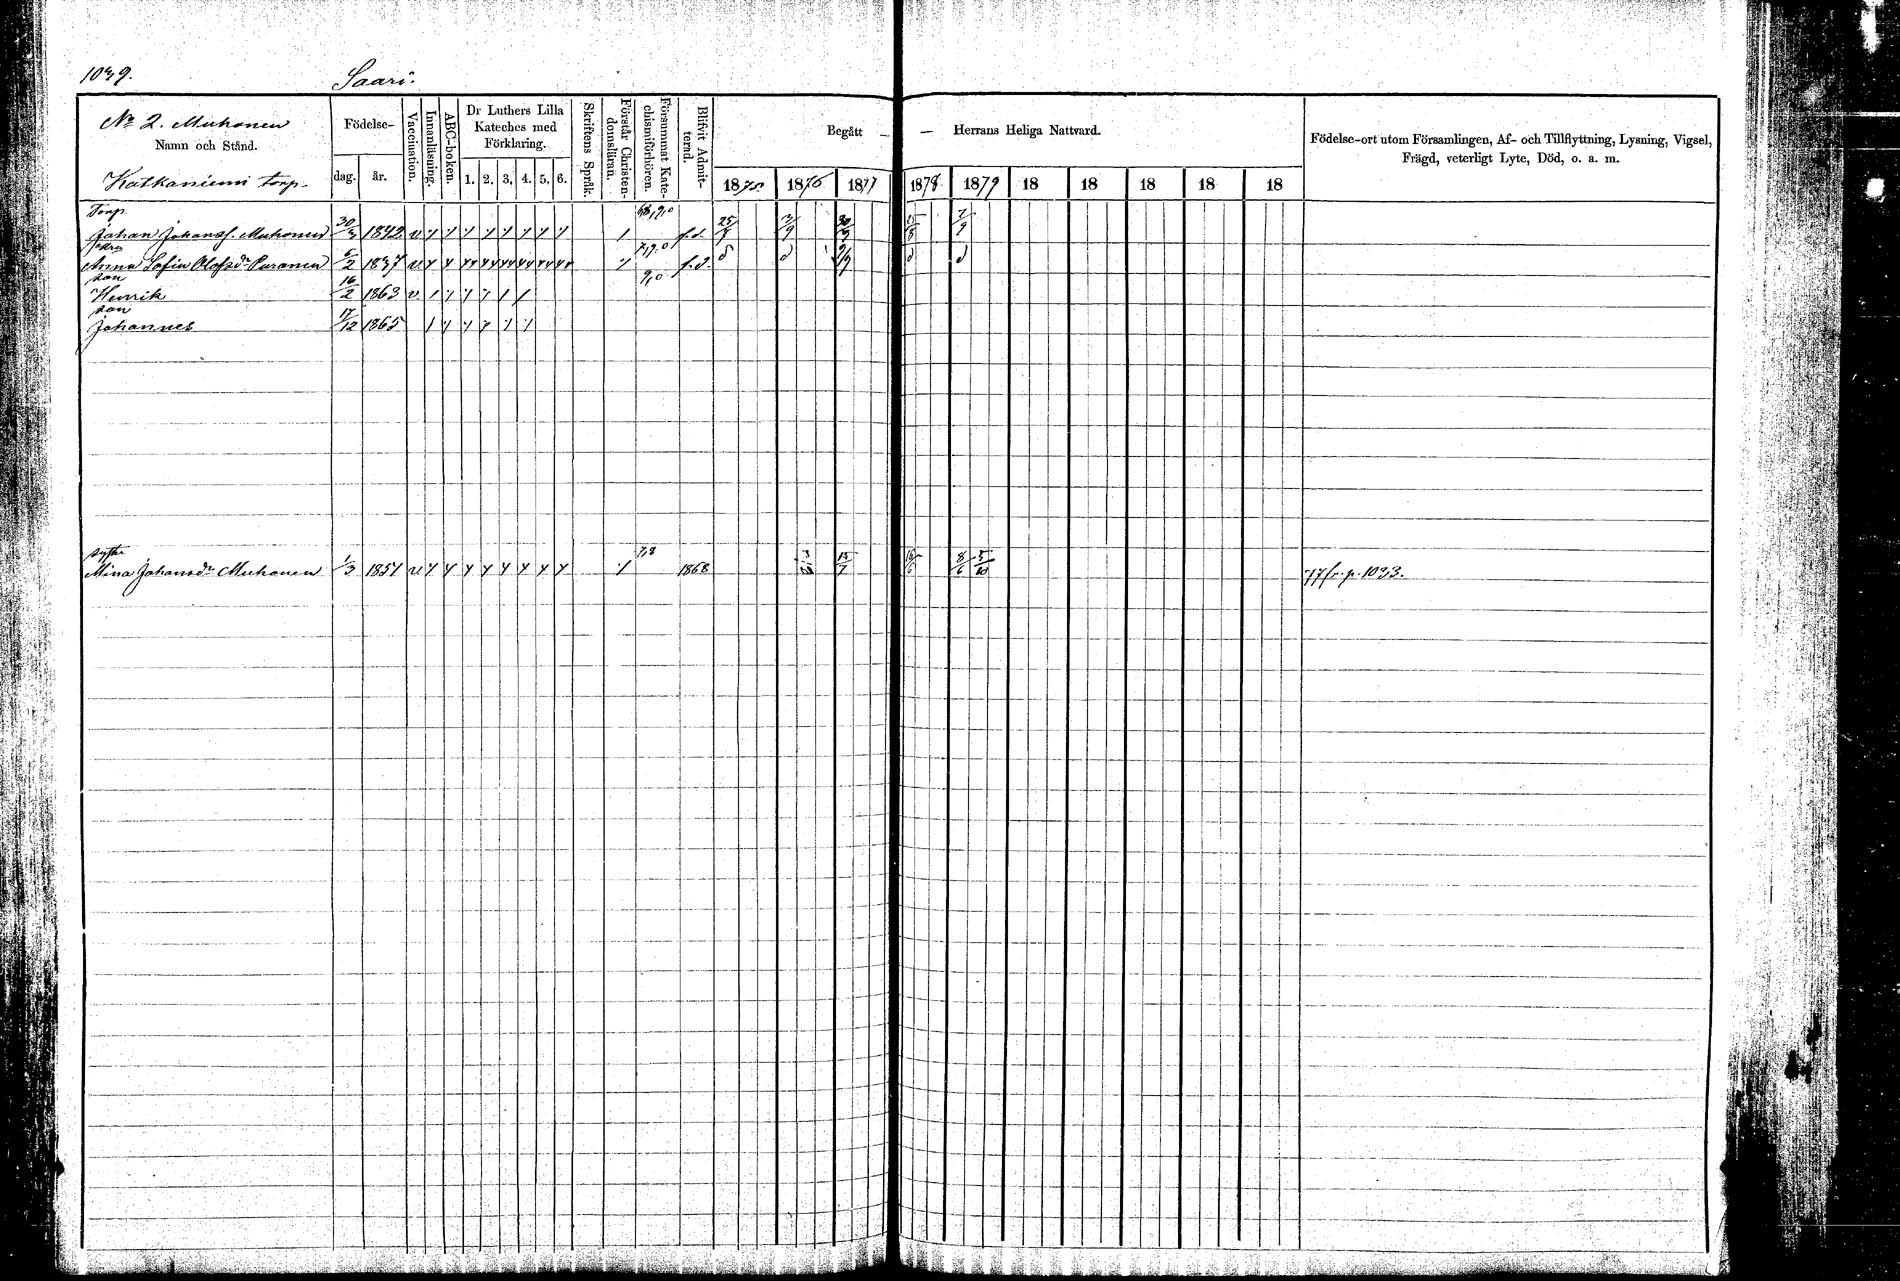 1039. Saari.
No 2. Muhonen
Namn och Stånd.
Katkaniemi torp.
Födelse-
dag. år.
Vaccination.
Innanläsning.
ABC-boken.
Dr Luthers Lilla
Kateches med
Förklaring.
1. 2. 3. 4. 5. 6.
Skriftens Språk.
Förstår Christen-
domsläran.
Försummat Kate-
chismiförhören.
Blifvit Admit-
terad.
Begått — — Herrans Heliga Nattvard.
1875 1876 1877 1878 1879 18 18 18 18 18
Födelse-ort utom Församlingen, Af- och Tillflyttning, Lysning, Vigsel,
Frägd, veterligt Lyte, Död, o. a. m.
Torp.
Johan Johanss. Muhonen 30/3 1842 v. f.d. 25/8 7/9
Anna Sofia Olofsdr Puranen 6/2 1837 v. f.d.
son
Henrik 16/2 1863 v.
son
Johannes 17/12 1865
syster
Mina Johansdr Muhonen 1/3 1851 v. 7,8 1868 8/6 5/10 77 fr. p. 1033.